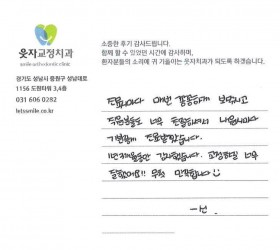 웃자교정치과
smile orthodontic clinic
경기도 성남시 중원구 성남대로
1156 도원타워 3,4층
031 606 0282
letssmile.co.kr
소중한 후기 감사드립니다.
함께 할 수 있었던 시간에 감사하며,
환자분들의 소리에 귀 기울이는 웃자치과가 되도록 하겠습니다.
진료마다 매번 꼼꼼하게 봐주시고
직원분들도 너무 친절하셔서 나올때마다
기분좋게 진료받았습니다.
1년 동안 감사했습니다. 교정하길 너무
잘했어요!! 무척 만족합니다